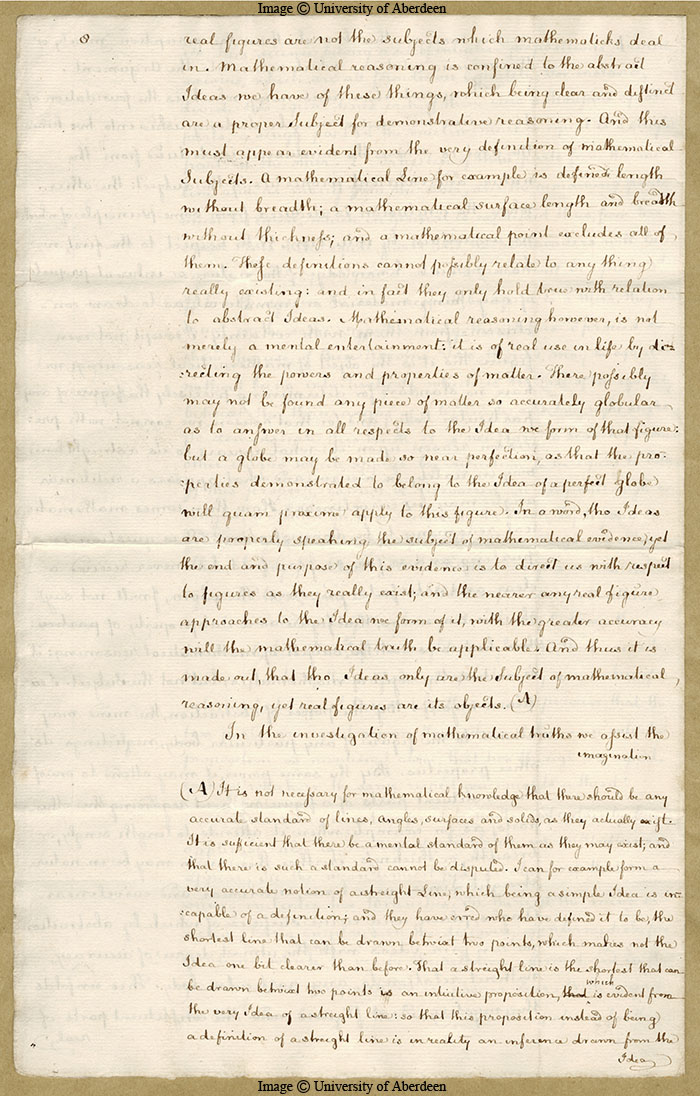 Image © University of Aberdeen
8
real figures are not the subjects which mathematicks deal
in. Mathematical reasoning is confined to the abstract
Ideas we have of these things, which being clear and distinct
are a proper Subject for demonstrative reasoning. And this
must appear evident from the very definition of mathematical
Subjects. A mathematical Line for example is defined length
without breadth; a mathematical surface length and breadth
without thickness; and a mathematical point excludes all of
them. These definitions cannot possibly relate to any thing
really existing: and in fact they only hold true with relation
to abstract Ideas. Mathematical reasoning however, is not
merely a mental entertainment: it is of real use in life by di-
:recting the powers and properties of matter. There possibly
may not be found any piece of matter so accurately globular
as to answer in all respects to the Idea we form of that figure:
but a globe may be made so near perfection, as that the pro-
:perties demonstrated to belong to the Idea of a perfect globe
will quam proxime apply to this figure. In a word, tho Ideas
are properly speaking the subject of mathematical evidence, yet
the end and purpose of this evidence is to direct us with respect
to figures as they really exist; and the nearer any real figure
approaches to the Idea we form of it, with the greater accuracy
will the mathematical truth be applicable. And thus it is
made out, that tho Ideas only are the Subject of mathematical
reasoning, yet real figures are its objects. (A)
In the investigation of mathematical truths we assist the
imagination
(A) It is not necessary for mathematical knowledge that there should be any
accurate standard of lines, angles, surfaces and solids, as they actually exist.
It is sufficient that there be a mental standard of them as they may exist; and
that there is such a standard cannot be disputed. I can for example form a
very accurate notion of a streight Line, which being a simple Idea is in-
:capable of a definition; and they have erred who have defined it to be, the
shortest line that can be drawn betwixt two points, which makes not the
Idea one bit clearer than before. That a streight line is the shortest that can
be drawn betwixt two points is an intuitive proposition, that which is evident from
the very Idea of a streight line: so that this proposition instead of being
a definition of a streight line is in reality an inference drawn from the
Idea
Image © University of Aberdeen